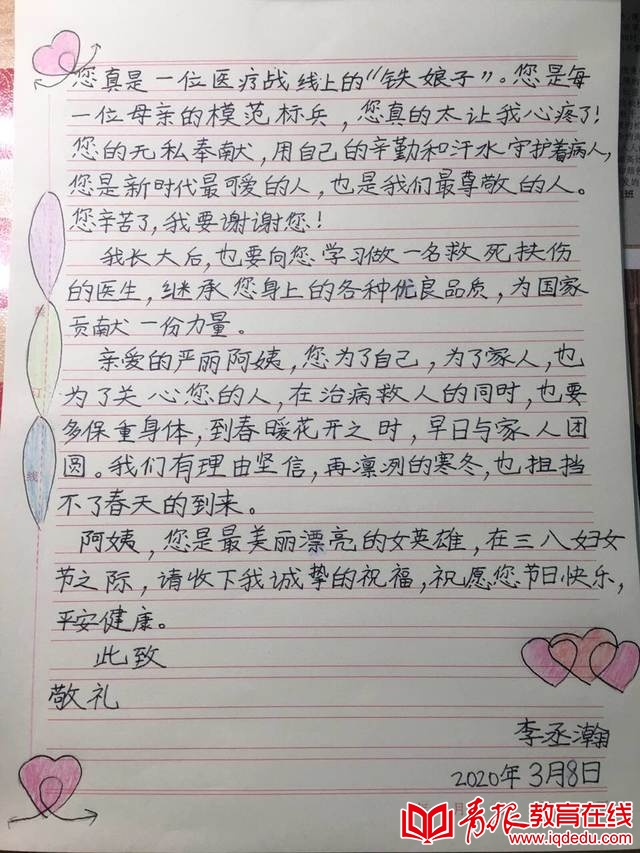 您真是一位医疗战线上的“铁娘子”。您是每
一位母亲的模范标兵，您真的太让我心疼了！
您的无私奉献，用自己的辛勤和汗水守护着病人，
您是新时代最可爱的人，也是我们最尊敬的人。
您辛苦了，我要谢谢您！
我长大后，也要向您学习做一名救死扶伤
的医生，继承您身上的各种优良品质，为国家
贡献一份力量。
亲爱的严丽阿姨，您为了自己，为了家人，也
为了关心您的人，在治病救人的同时，也要
多保重身体，到春暖花开之时，早日与家人团
圆。我们有理由坚信，再凛冽的寒冬，也担挡
不了春天的到来。
阿姨，您是最美丽漂亮的女英雄，在三八妇女
节之际，请收下我诚挚的祝福，祝愿您节日快乐，
平安健康。
此致
敬礼
李丞瀚
2020年3月8日
线
青报教育在线
www.iqdedu.com